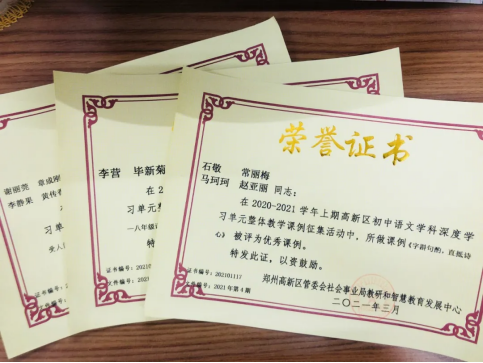 荣誉证书
石敬 常丽梅
马珂珂 赵亚丽 同志：
在 2020-2021 学年上期高新区初中语文学科深度学
习单元整体教学课例征集活动中，所做课例《字辟句酌，直抵诗
心》 被评为优秀课例。
特发此证，以资鼓励。
证书编号：202101117
文件编号：2021 年第 4 期
郑州高新区管委会社会事业局教研和智慧教育发展中心
二〇二一年三月
李营 毕新菊
在 2
习单元整
一八年级
特发
证书编号：20210
文件编号：2021
谢丽莞 章成刚
李静果 黄传
习单元
特发
证书编号
文件编号